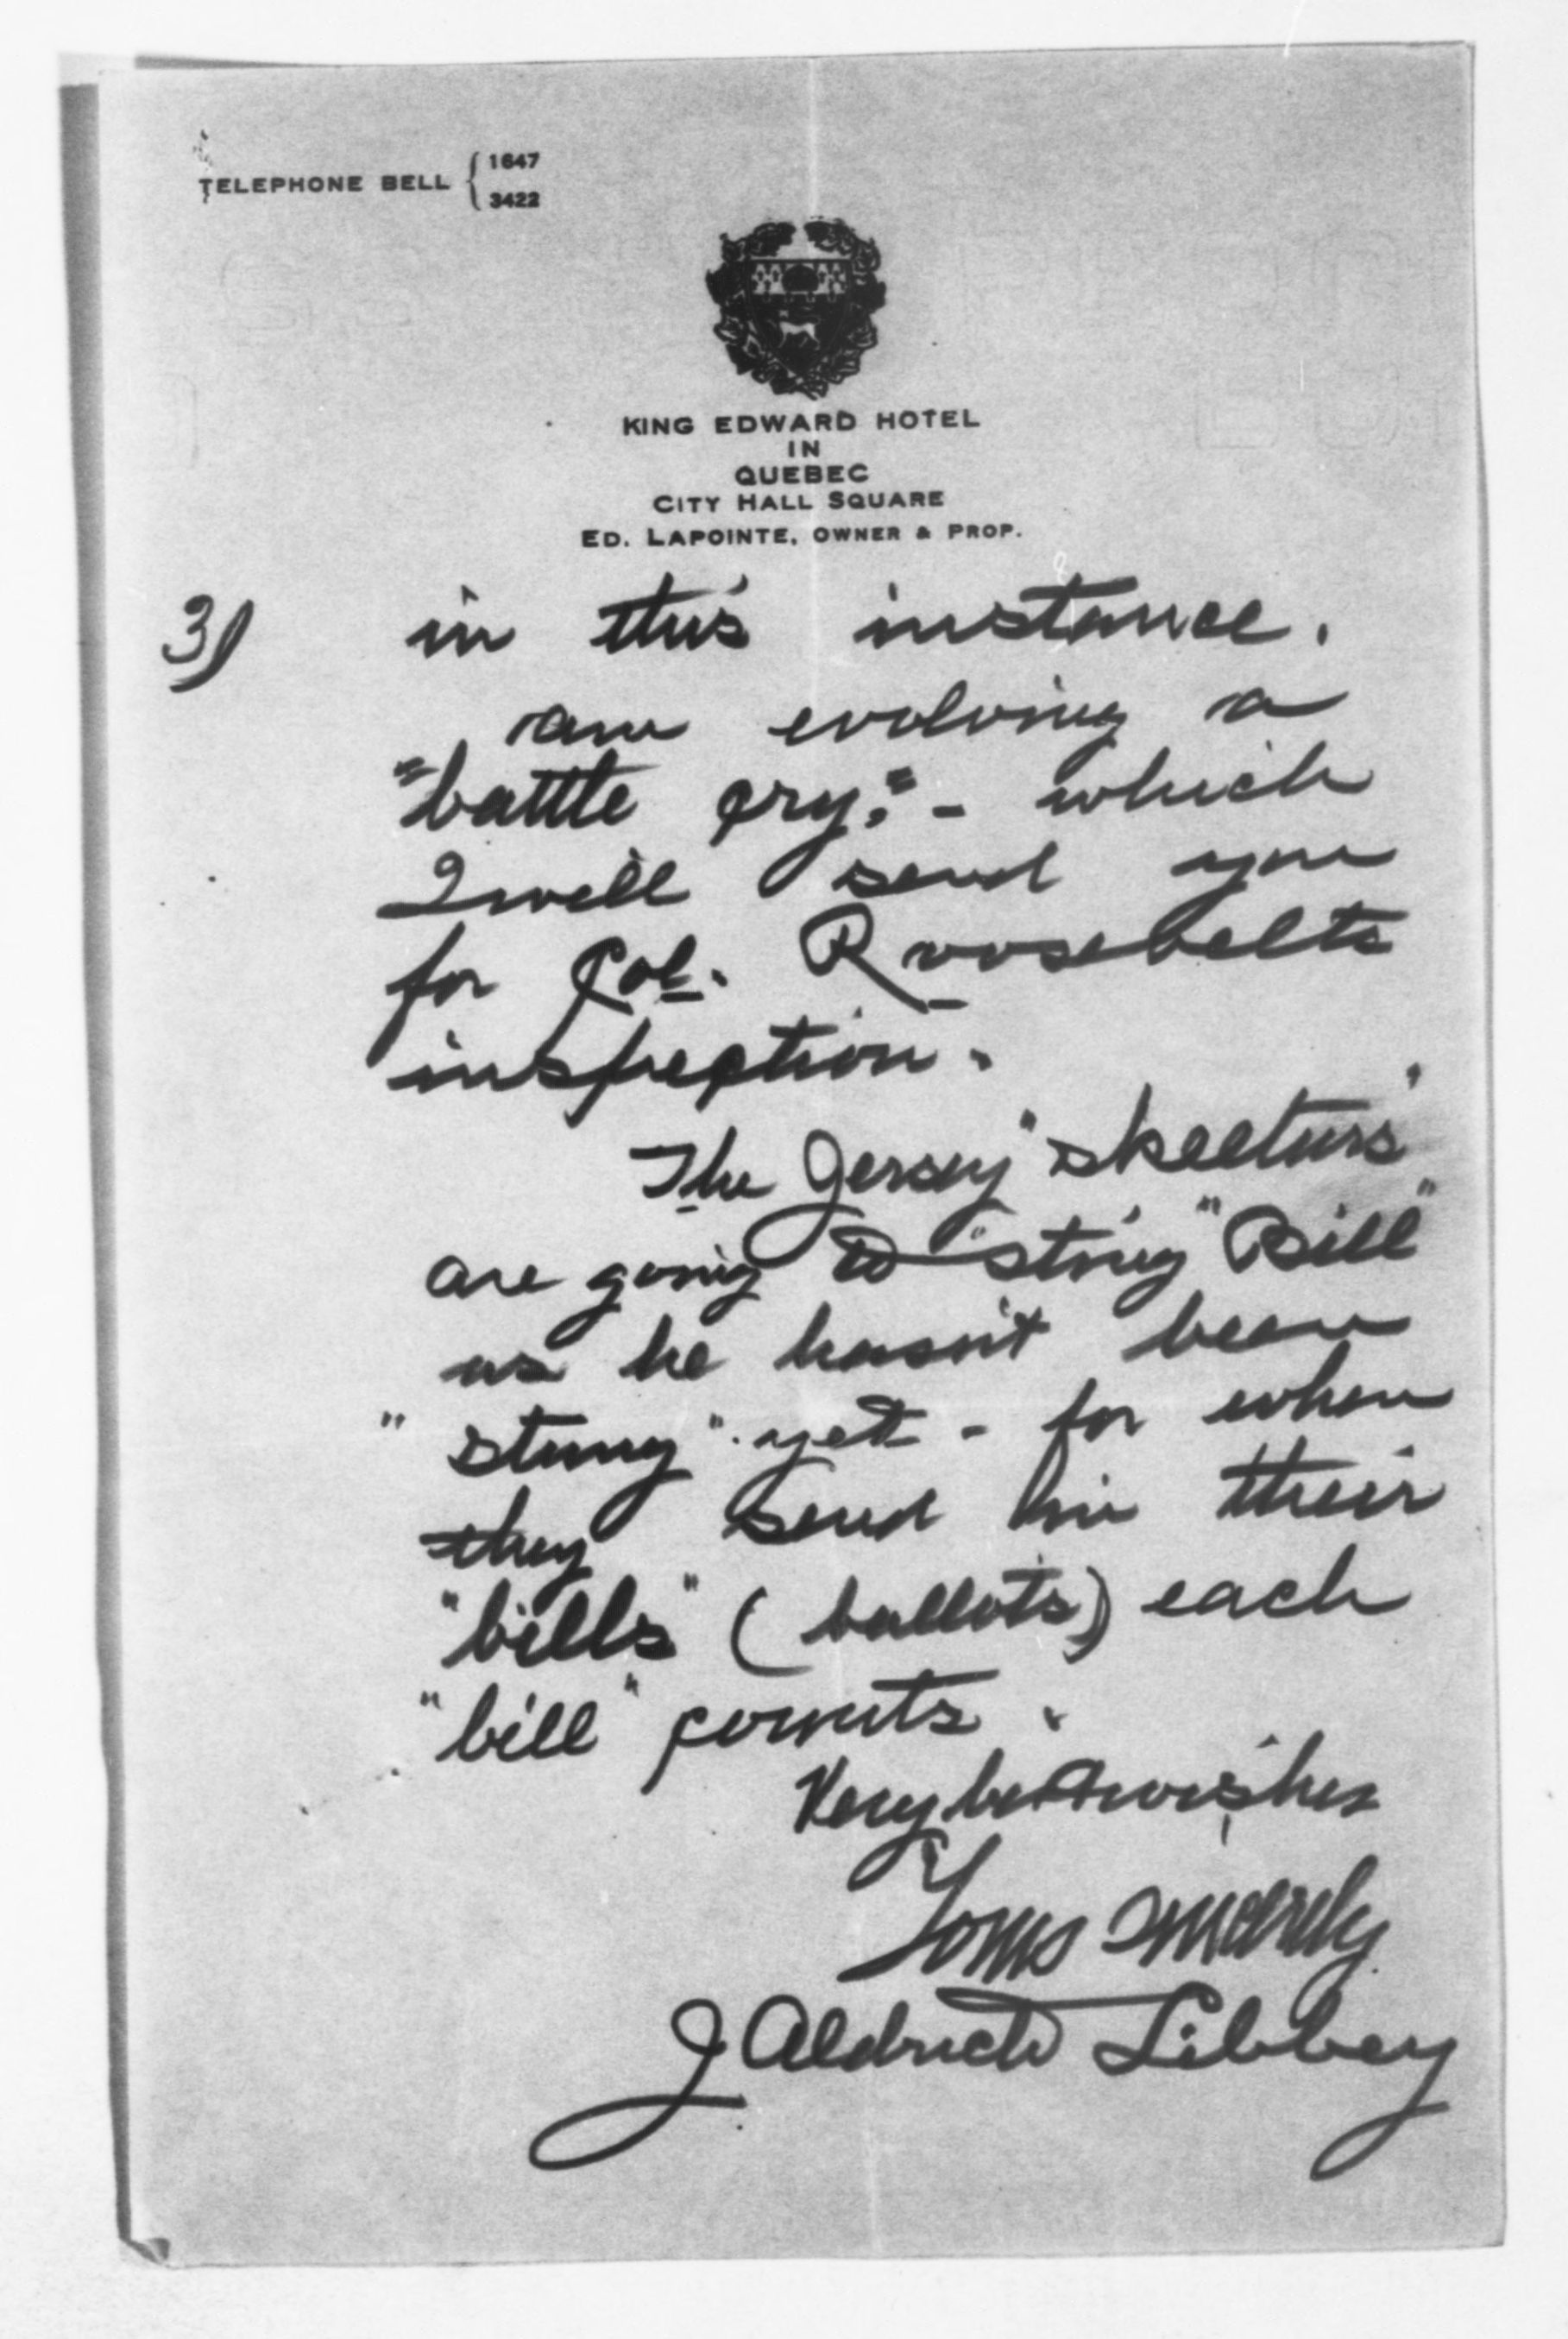 TELEPHONE BELL { 1647
3422
KING EDWARD HOTEL
IN
QUEBEC
CITY HALL SQUARE
ED. LAPOINTE, OWNER & PROP.
3) in this instance.
am evolving a
"battle cry;" - which
I will send you
for Col. Roosevelts
inspection.
The Jersey "skeeturs"
are going to "sting" "Bill"
as he hasn't been
"stung" yet - for when
they send in their
"bills" (ballots) each
"bill" counts.
Very best wishes
Yours sincerely
J Aldrich Libbey